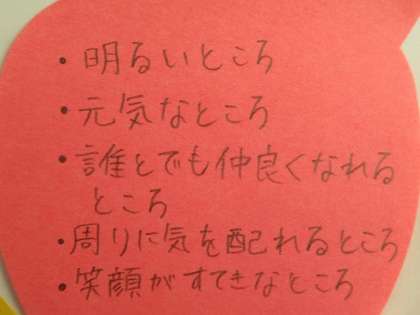 ・明るいところ
・元気なところ
・誰とでも仲良くなれる
ところ
・周りに気を配れるところ
・笑顔がすてきなところ